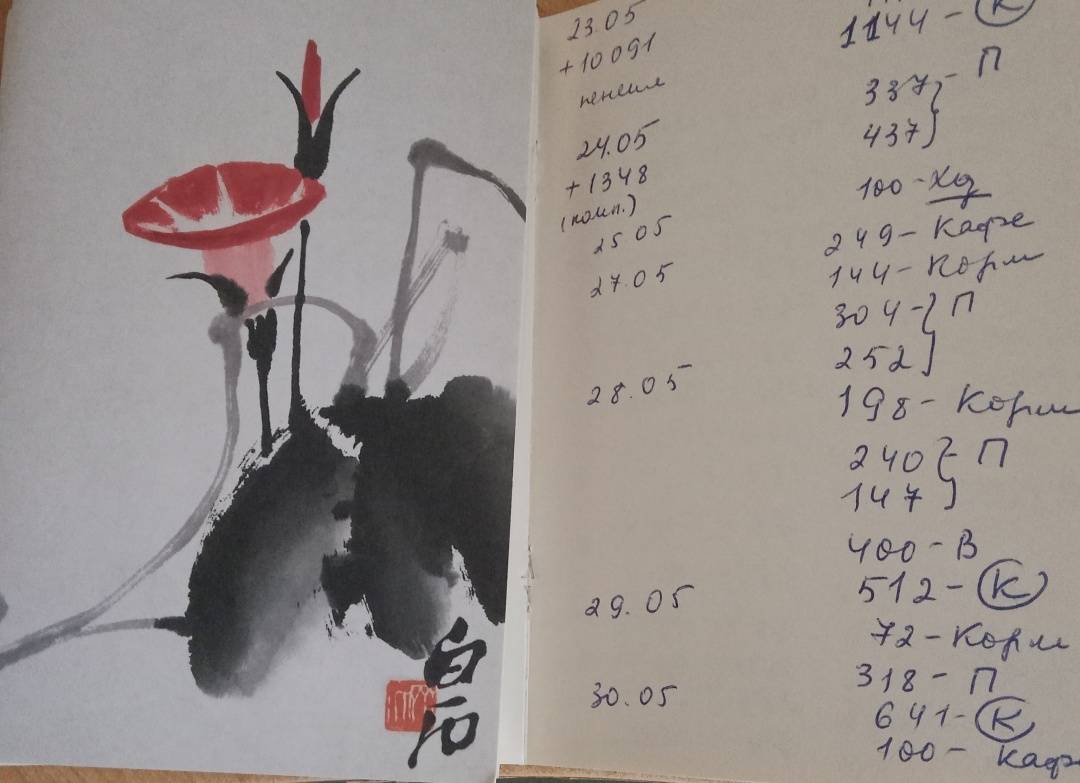 白石
23.05
+10091
пенсия
1144 - К
337 } - П
437
24.05
+1348
(комп.)
100 - Хд
25.05
249 - Кафе
27.05
144 - Корм
304 - } П
252
28.05
198 - Корм
240 } - П
147
400 - В
512 - К
29.05
72 - Корм
318 - П
30.05
641 - К
100 - Каф